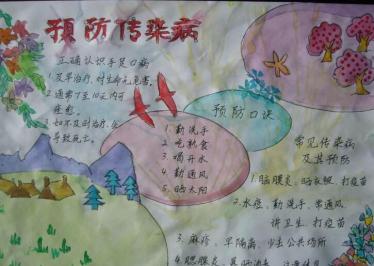 预防传染病
正确认识手足口病
1、及早治疗,对生命无危害。
2、通常7至10天内可
痊愈。
3、如不及时治疗,会
导致死亡。
预防口诀
1、勤洗手
2、吃熟食
3、喝开水
4、勤通风
5、晒太阳
常见传染病
及其预防
1、脑膜炎、晒衣服、打疫苗
2、水痘、勤洗手、常通风
讲卫生、打疫苗
3、麻疹、早隔离、少去公共场所
4、腮腺炎、